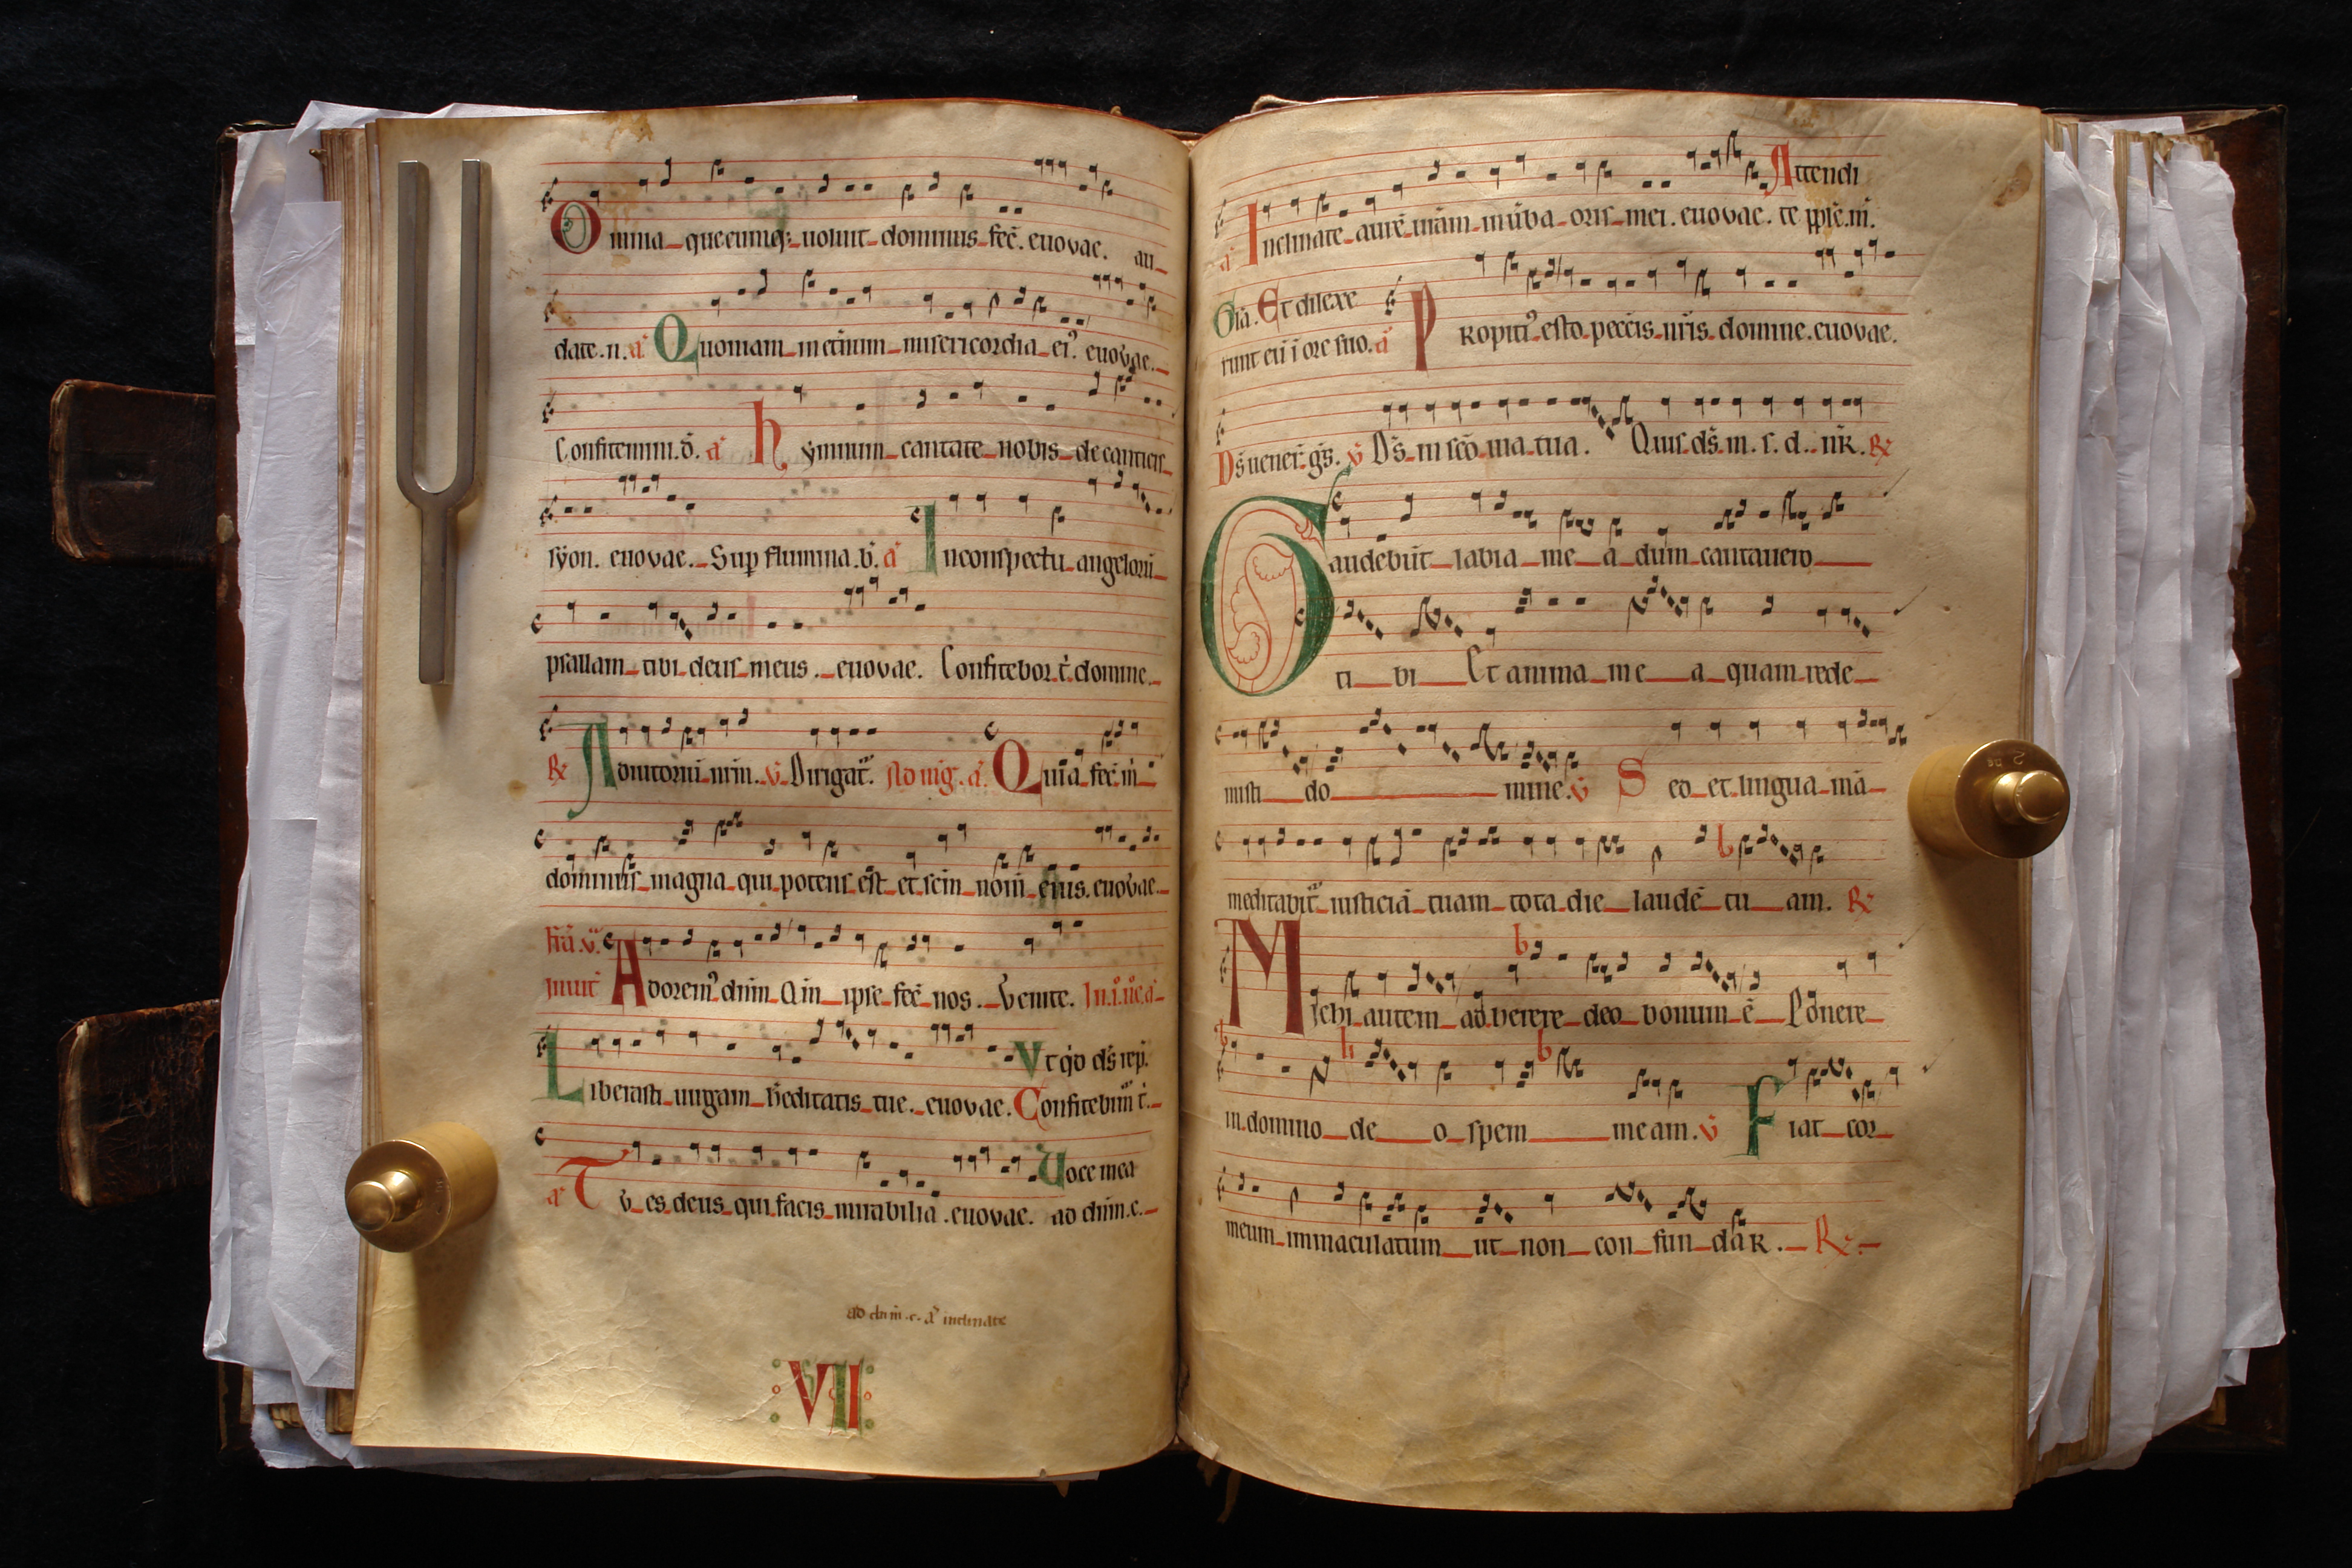 Omnia quecumq; uoluit dominus fec̄. euovae. au
date. n. a᷎ Quoniam in et̄num misericordia ei᷒ euovae.
Confitemini. d̄. a᷎ hymnum cantate nobis de canticis
syon. euovae. Sup flumina. b. a᷎ In conspectu angelorū
psallam tibi deus meus. euovae. Confitebor t̄. domine.
℞ Adiutoriū nr̄m. v̄ Dirigat᷑. Ad mg̅. a᷎. Quia fec̄ m̄
dominus magna qui potens est et sc̄m nom̄ eius. euovae.
Adorem᷒ dn̄m Q̄m ipse fec̄ nos. Venite.
Vt q̄d ds̄ rep̄.
Liberasti uirgam h̄editatis tue. euovae. Confitebim᷒ t̄.
Uoce mea
a᷎ Tv es deus qui facis mirabilia. euovae. ad dn̄m. c.
ad dn̄m. c. a᷎ inclinate
VII
Attendi
a᷎ Inclinate aurē urām in ūba oris mei. euovae. te pple. m̄.
Et dilexe
runt eū ī ore suo. a᷎ Propiti᷒ esto peccis nr̄is domine. euovae.
Ds̄ uener̄. gs̄. v̄ Ds̄ in sc̄o uia tua. Quis ds̄. m. s. d. nr̄. ℞
Gaudebūt labia me a dum cantauero
ti bi Et anima me a quam rede
misti do mine. v̄ Sed et lingua mā
meditabit᷑ iusticiā tuam tota die laudē tu am. ℞
Michi autem adherere deo bonum ē Ponere
in domino de o spem meam. v̄ Fiat cor
meum immaculatum ut non con fun dar. ℞